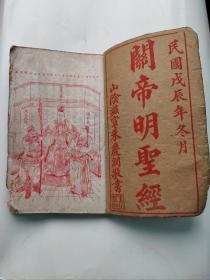 民國戊辰年冬月
關帝明聖經
山陰 朱慶潤敬書